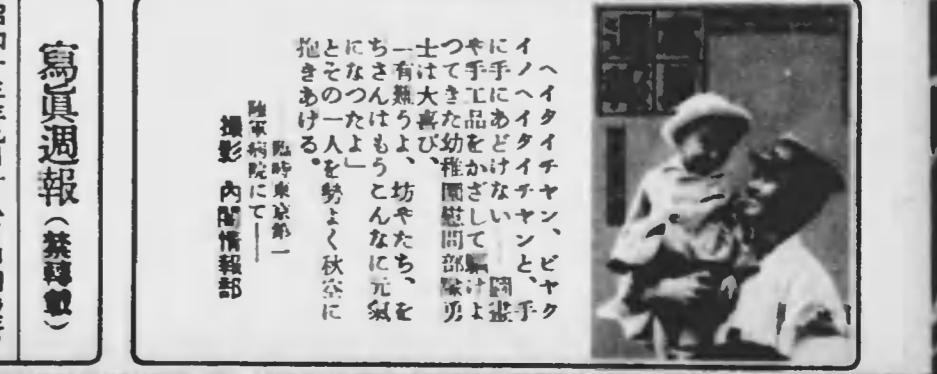 ヘイタイチヤン、ビヤク
イノヘイタイチヤンと、手
に手にあどけない 圖畫
や手工品をかざして驅けよ
つてきた幼稚園慰問部隊勇
士は大喜び、
「有難うよ、坊やたち、を
ちさんはもうこんなに元氣
になつたよ」
とその一人を勢よく秋空に
抱きあげる。
臨時東京第一
陸軍病院にて――
撮影 内閣情報部
寫眞週報(禁轉載)